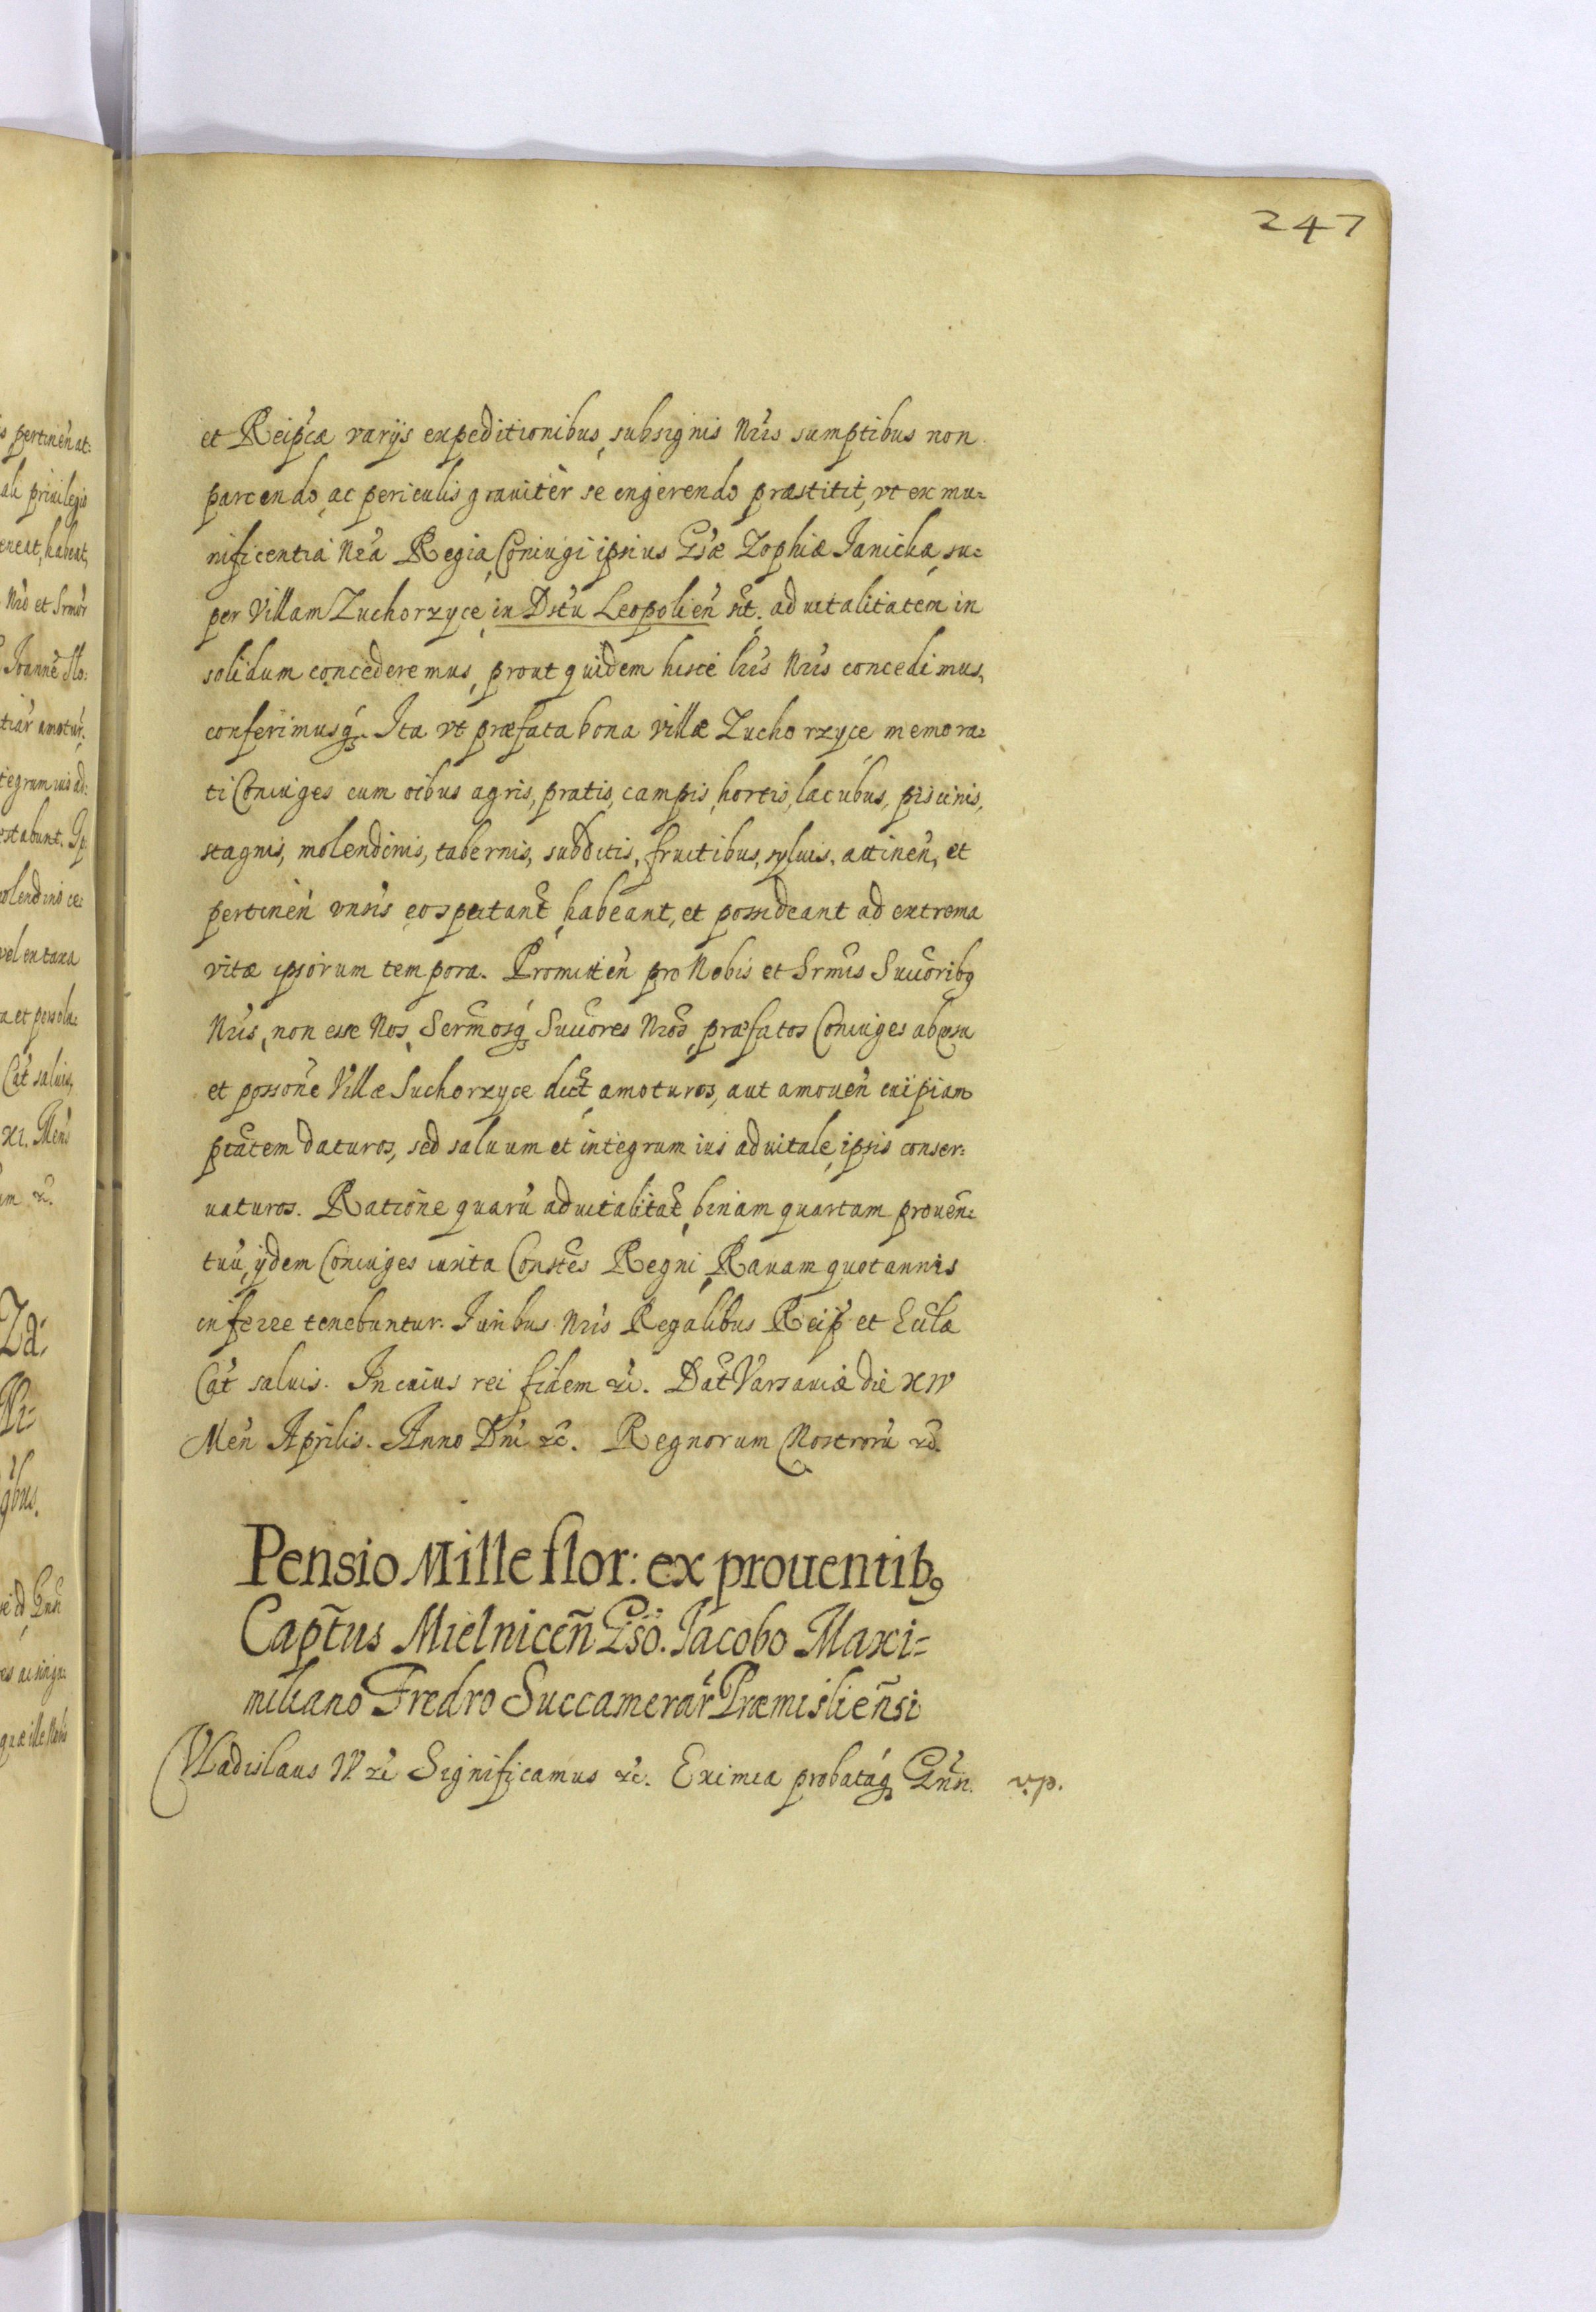 247
et Reip̃cæ varijs expeditionibus, sub signis Nr̃is sumptibus non
parcendo, ac periculis grauitèr se ingerendo præstitit, vt ex mu=
nificentia Nr̃a Regia, Coniugi ipsius Gs̃æ Zophiæ Janicka, su=
per Villam Zuchorzyce, in Dstũ Leopolien̄ sit. aduitalitatem in
solidum concederemus, prout quidem hisce lr̃is Nr̃is concedimus,
conferimusq́. Ita vt præfata bona villæ Zuchorzyce memora=
ti Coniuges cum oĩbus agris, pratis, campis, hortis, lacubus, piscinis,
stagnis, molendinis, tabernis, subditis, fructibus, syluis, attinen̄, et
pertinen̄ vnsis eo spectant̃, habeant, et possideant ad extrema
vitæ ipsorum tempora. Promitten̄ pro Nobis et Srm̃is Succoribq
Nr̃is, non esse Nos, Serm̃osq́ Succores Nr̃os, præfatos Coniuges ab usu
et possoñe Villæ Suchorzyce dict̃ amoturos, aut amouen̄ cuipiam
ptãtem daturos, sed saluum et integrum ius aduitale, ipsis conser=
uaturos. Ratioñe quarũ aduitalitat̃, binam quartam prouen̄=
tuũ, ijdem Coniuges iuxta Constes̃ Regni, Rauam quotannis
inferre tenebuntur. Iuribus Nr̃is Regalibus Reip̃ et Eccl̃æ
Cat̃ saluis. In cuius rei fidem &c. Dat̃ Varsauiæ die XIV
Men̄ Aprilis. Anno Dñi &c. Regnorum Nostrorũ &c.
Pensio Mille flor: ex prouentibq
Cap̃tus Mielnicen̄ Gs̃o. Jacobo Maxi=
miliano Fredro Succamerar̃ Præmislien̄si
Vladislaus IV. &c Significamus &c. Eximia probataq́ Gnñ. v.p.